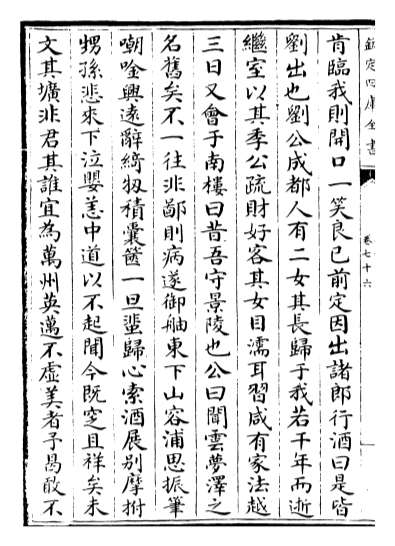 欽定四庫全書
卷七十六
肯臨我則開口一笑良已前定因出諸郎行酒曰是皆
劉出也劉公成都人有二女其長歸于我若干年而逝
繼室以其季公疏財好客其女目濡耳習咸有家法越
三日又會于南樓曰昔吾守景陵也公曰聞雲夢澤之
名舊矣不一往非鄙則病遂御舳東下山容浦思振筆
嘲唫興遠辭綺扨積囊篋一旦蜚歸心索酒展別摩拊
甥孫悲來下泣嬰恙中道以不起聞今既窆且祥矣未
文其壙非君其誰宜為萬州英邁不虛美者予曷敢不